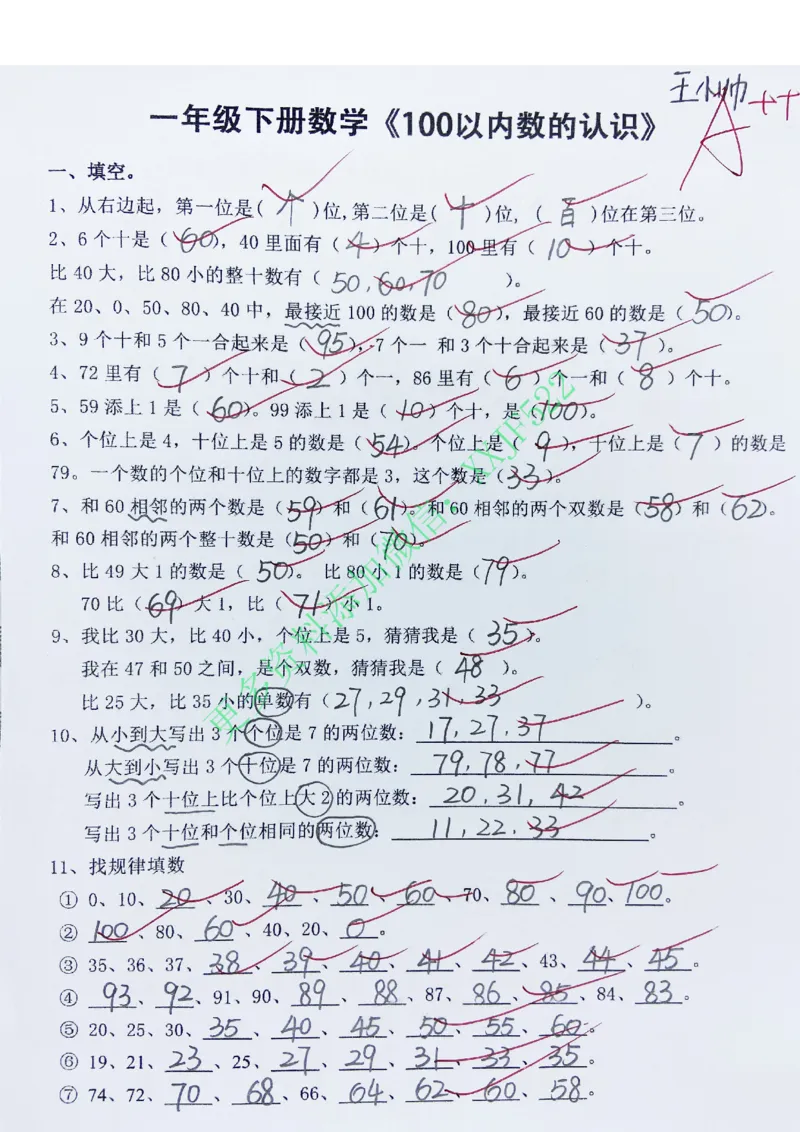 王小帅
A++
一年级下册数学《100以内数的认识》
一、填空。
1、从右边起，第一位是( 个 )位,第二位是( 十 )位，( 百 )位在第三位。
2、6个十是（ 60 ），40里面有（ 4 ）个十，100里有（ 10 ）个十。
比40大，比80小的整十数有（ 50,60,70 ）。
在20、0、50、80、40中，最接近100的数是（ 80 ），最接近60的数是（ 50 ）。
3、9个十和5个一合起来是（ 95 ），7个一 和3个十合起来是（ 37 ）。
4、72里有（ 7 ）个十和（ 2 ）个一，86里有（ 6 ）个一和（ 8 ）个十。
5、59添上1是（ 60 ）。99添上1是（ 10 ）个十，是（100）。
6、个位上是4，十位上是5的数是（ 54 ）。个位上是（ 9 ），十位上是（ 7 ）的数是
79。一个数的个位和十位上的数字都是3，这个数是（ 33 ）。
7、和60相邻的两个数是（ 59 ）和（ 61 ）。和60相邻的两个双数是（ 58 ）和（ 62 ）。
和60相邻的两个整十数是（ 50 ）和（ 70 ）。
8、比49大1的数是（ 50 ）。 比80小1的数是（ 79 ）。
70比（ 69 ）大1，比（ 71 ）小1。
9、我比30大，比40小，个位上是5，猜猜我是（ 35 ）。
我在47和50之间，是个双数，猜猜我是（ 48 ）。
比25大，比35小的单数有（ 27,29,31,33 ）。
10、从小到大写出3个个位是7的两位数： 17,27,37 。
从大到小写出3个十位是7的两位数： 79,78,77 。
写出3个十位上比个位上大2的两位数： 20,31,42 。
写出3个十位和个位相同的两位数： 11,22,33 。
11、找规律填数
① 0、10、20、30、40、50、60、70、80、90、100。
② 100、80、60、40、20、0。
③ 35、36、37、38、39、40、41、42、43、44、45。
④ 93、92、91、90、89、88、87、86、85、84、83。
⑤ 20、25、30、35、40、45、50、55、60。
⑥ 19、21、23、25、27、29、31、33、35。
⑦ 74、72、70、68、66、64、62、60、58。
更多资料添加微信：XXJF522